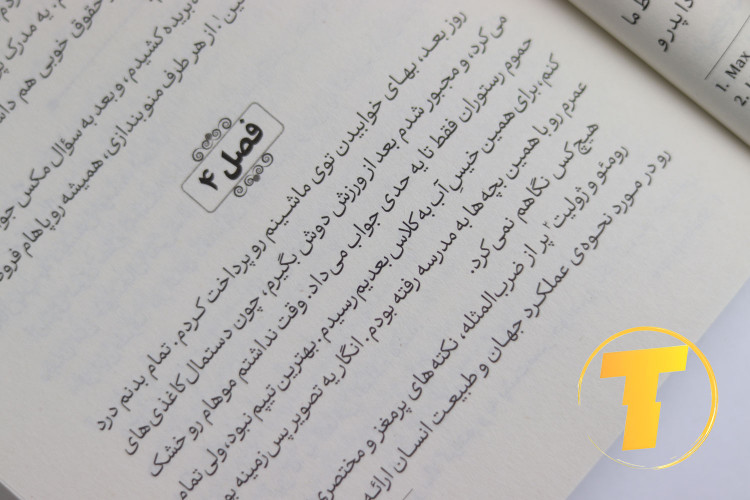 حقوق خوبی هم
بریده کشیدم، و بعد به سؤال مکس
از هر طرف منو بندازی، همیشه رو پاهام
فصل ۴
روز بعد، بهای خوابیدن توی ماشینم رو پرداخت کردم. تمام بدنم درد
می‌کرد، و مجبور شدم بعد از ورزش دوش بگیرم، چون دستمال کاغذی‌های
حموم رستوران فقط تا یه حدی جواب می‌داد. وقت نداشتم موهام رو خشک
کنم، برای همین خیسِ آب به کلاس بعدیم رسیدم. بهترین تیپم نبود، ولی تمام
عمرم رو با همین بچه‌ها به مدرسه رفته بودم. انگار یه تصویر پس زمینه
هیچ‌کس نگاهم نمی‌کرد.
رومئو و ژولیت۲ پر از ضرب‌المثله، نکته‌های پرمغز و مختصری
رو در مورد نحوه‌ی عملکرد جهان و طبیعت انسان ارائه
ط ما
دا پدر و
1. Max
2.
T